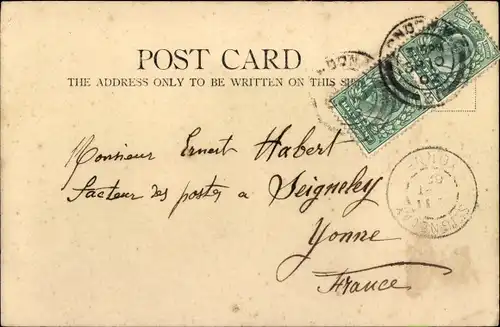 POST CARD
THE ADDRESS ONLY TO BE WRITTEN ON THIS
Monsieur Ernest Habert
facteur des postes a Seignelay
Yonne
France